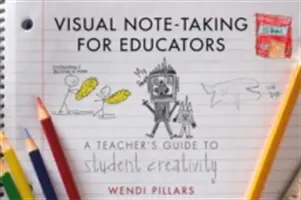 VISUAL NOTE-TAKING
FOR EDUCATORS
A TEACHER'S GUIDE TO
student creativity
WENDI PILLARS